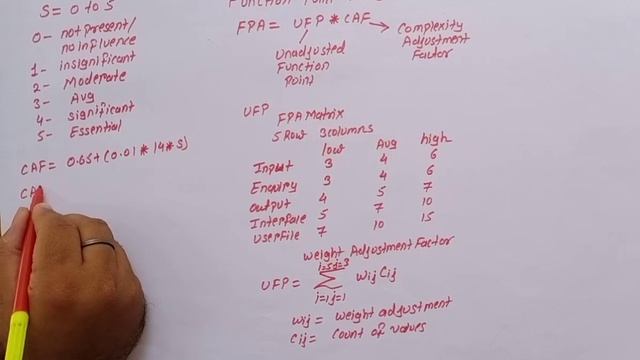 S = 0 to 5
0 - not present/
no influence
1 - insignificant
2 - Moderate
3 - Avg
4 - significant
5 - Essential
CAF = 0.65 + (0.01 * 14 * S)
CA
Function Point
FPA = UFP * CAF → Complexity
Adjustment
Factor
Unadjusted
Function
Point
UFP
FPA Matrix
5 Row 3 columns
low Avg high
Input 3 4 6
Enquiry 3 4 6
Output 4 5 7
Interface 5 7 10
UserFile 7 10 15
weight Adjustment Factor
i=5 j=3
UFP = Σ Wij Cij
i=1 j=1
Wij = weight adjustment
Cij = Count of values